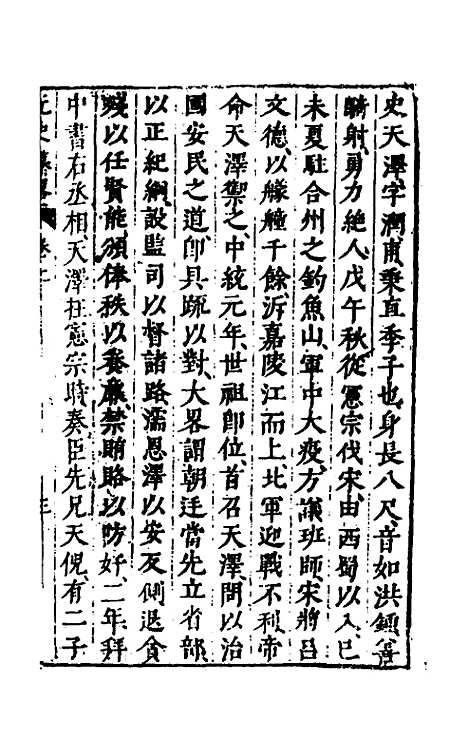 史天澤、字潤甫、秉直季子也、身長八尺、音如洪鍾、善
騎射、勇力絶人、戊午秋、從憲宗伐宋、由西蜀以入、已
未夏、駐合州之釣魚山、軍中大疫、方議班師、宋將呂
文德、以艨艟千餘、泝嘉陵江而上、北軍迎戰不利、帝
命天澤禦之、中統元年、世祖卽位、首召天澤、問以治
國安民之道、卽具疏以對、大畧謂朝廷當先立省部、
以正紀綱、設監司以督諸路、霈恩澤以安反側、退貪
殘以任賢能、頒俸秩以養廉、禁賄賂以防奸、二年、拜
中書右丞相、天澤在憲宗時、奏臣先兄天倪、有二子
元史 卷